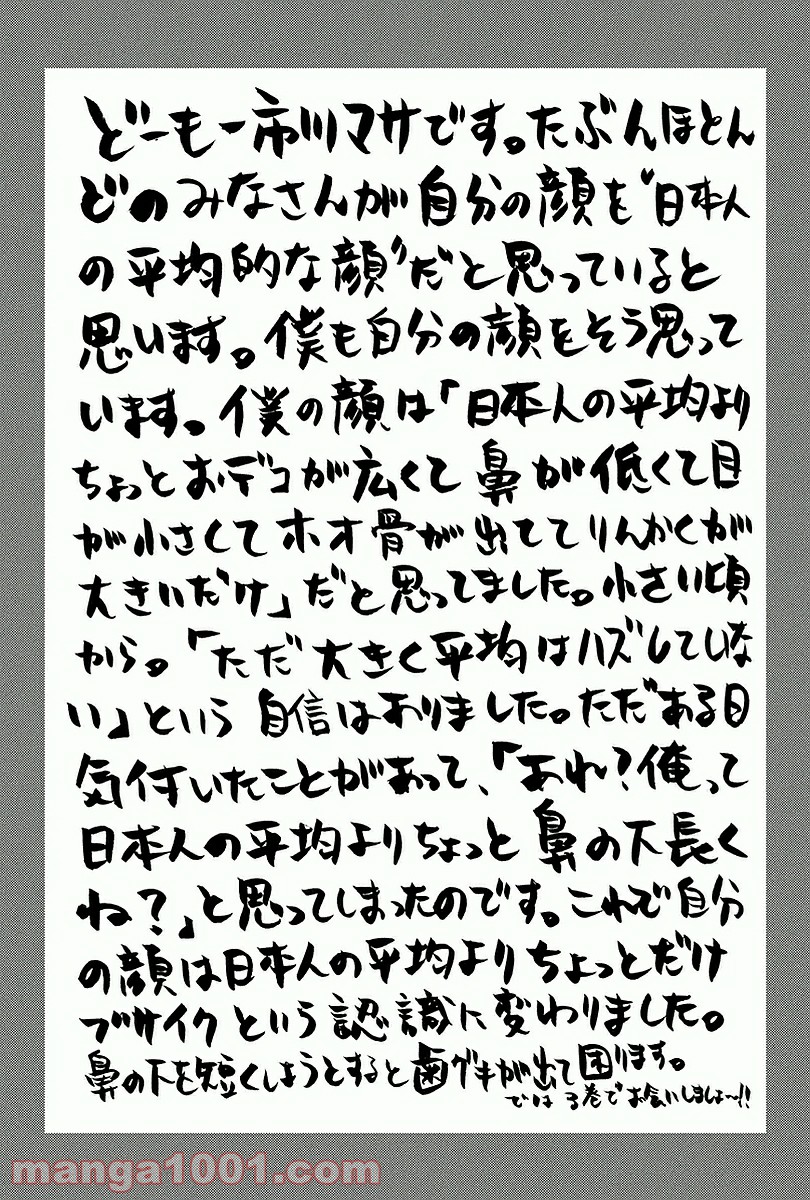 どーも一市川マサです。たぶんほとん
どのみなさんが自分の顔を〝日本人
の平均的な顔〟だと思っていると
思います。僕も自分の顔をそう思って
います。僕の顔は「日本人の平均より
ちょっとおデコが広くて鼻が低くて目
が小さくてホオ骨が出ててりんかくが
大きいだけ」だと思ってました。小さい頃
から。「ただ大きく平均はハズしていな
い」という自信はありました。ただある日
気付いたことがあって、「あれ?俺って
日本人の平均よりちょっと鼻の下長く
ね?」と思ってしまったのです。これで自分
の顔は日本人の平均よりちょっとだけ
ブサイクという認識に変わりました。
鼻の下を短くしようとすると歯グキが出て困ります。
では3巻でお会いしましょ〜!!
manga1001.com